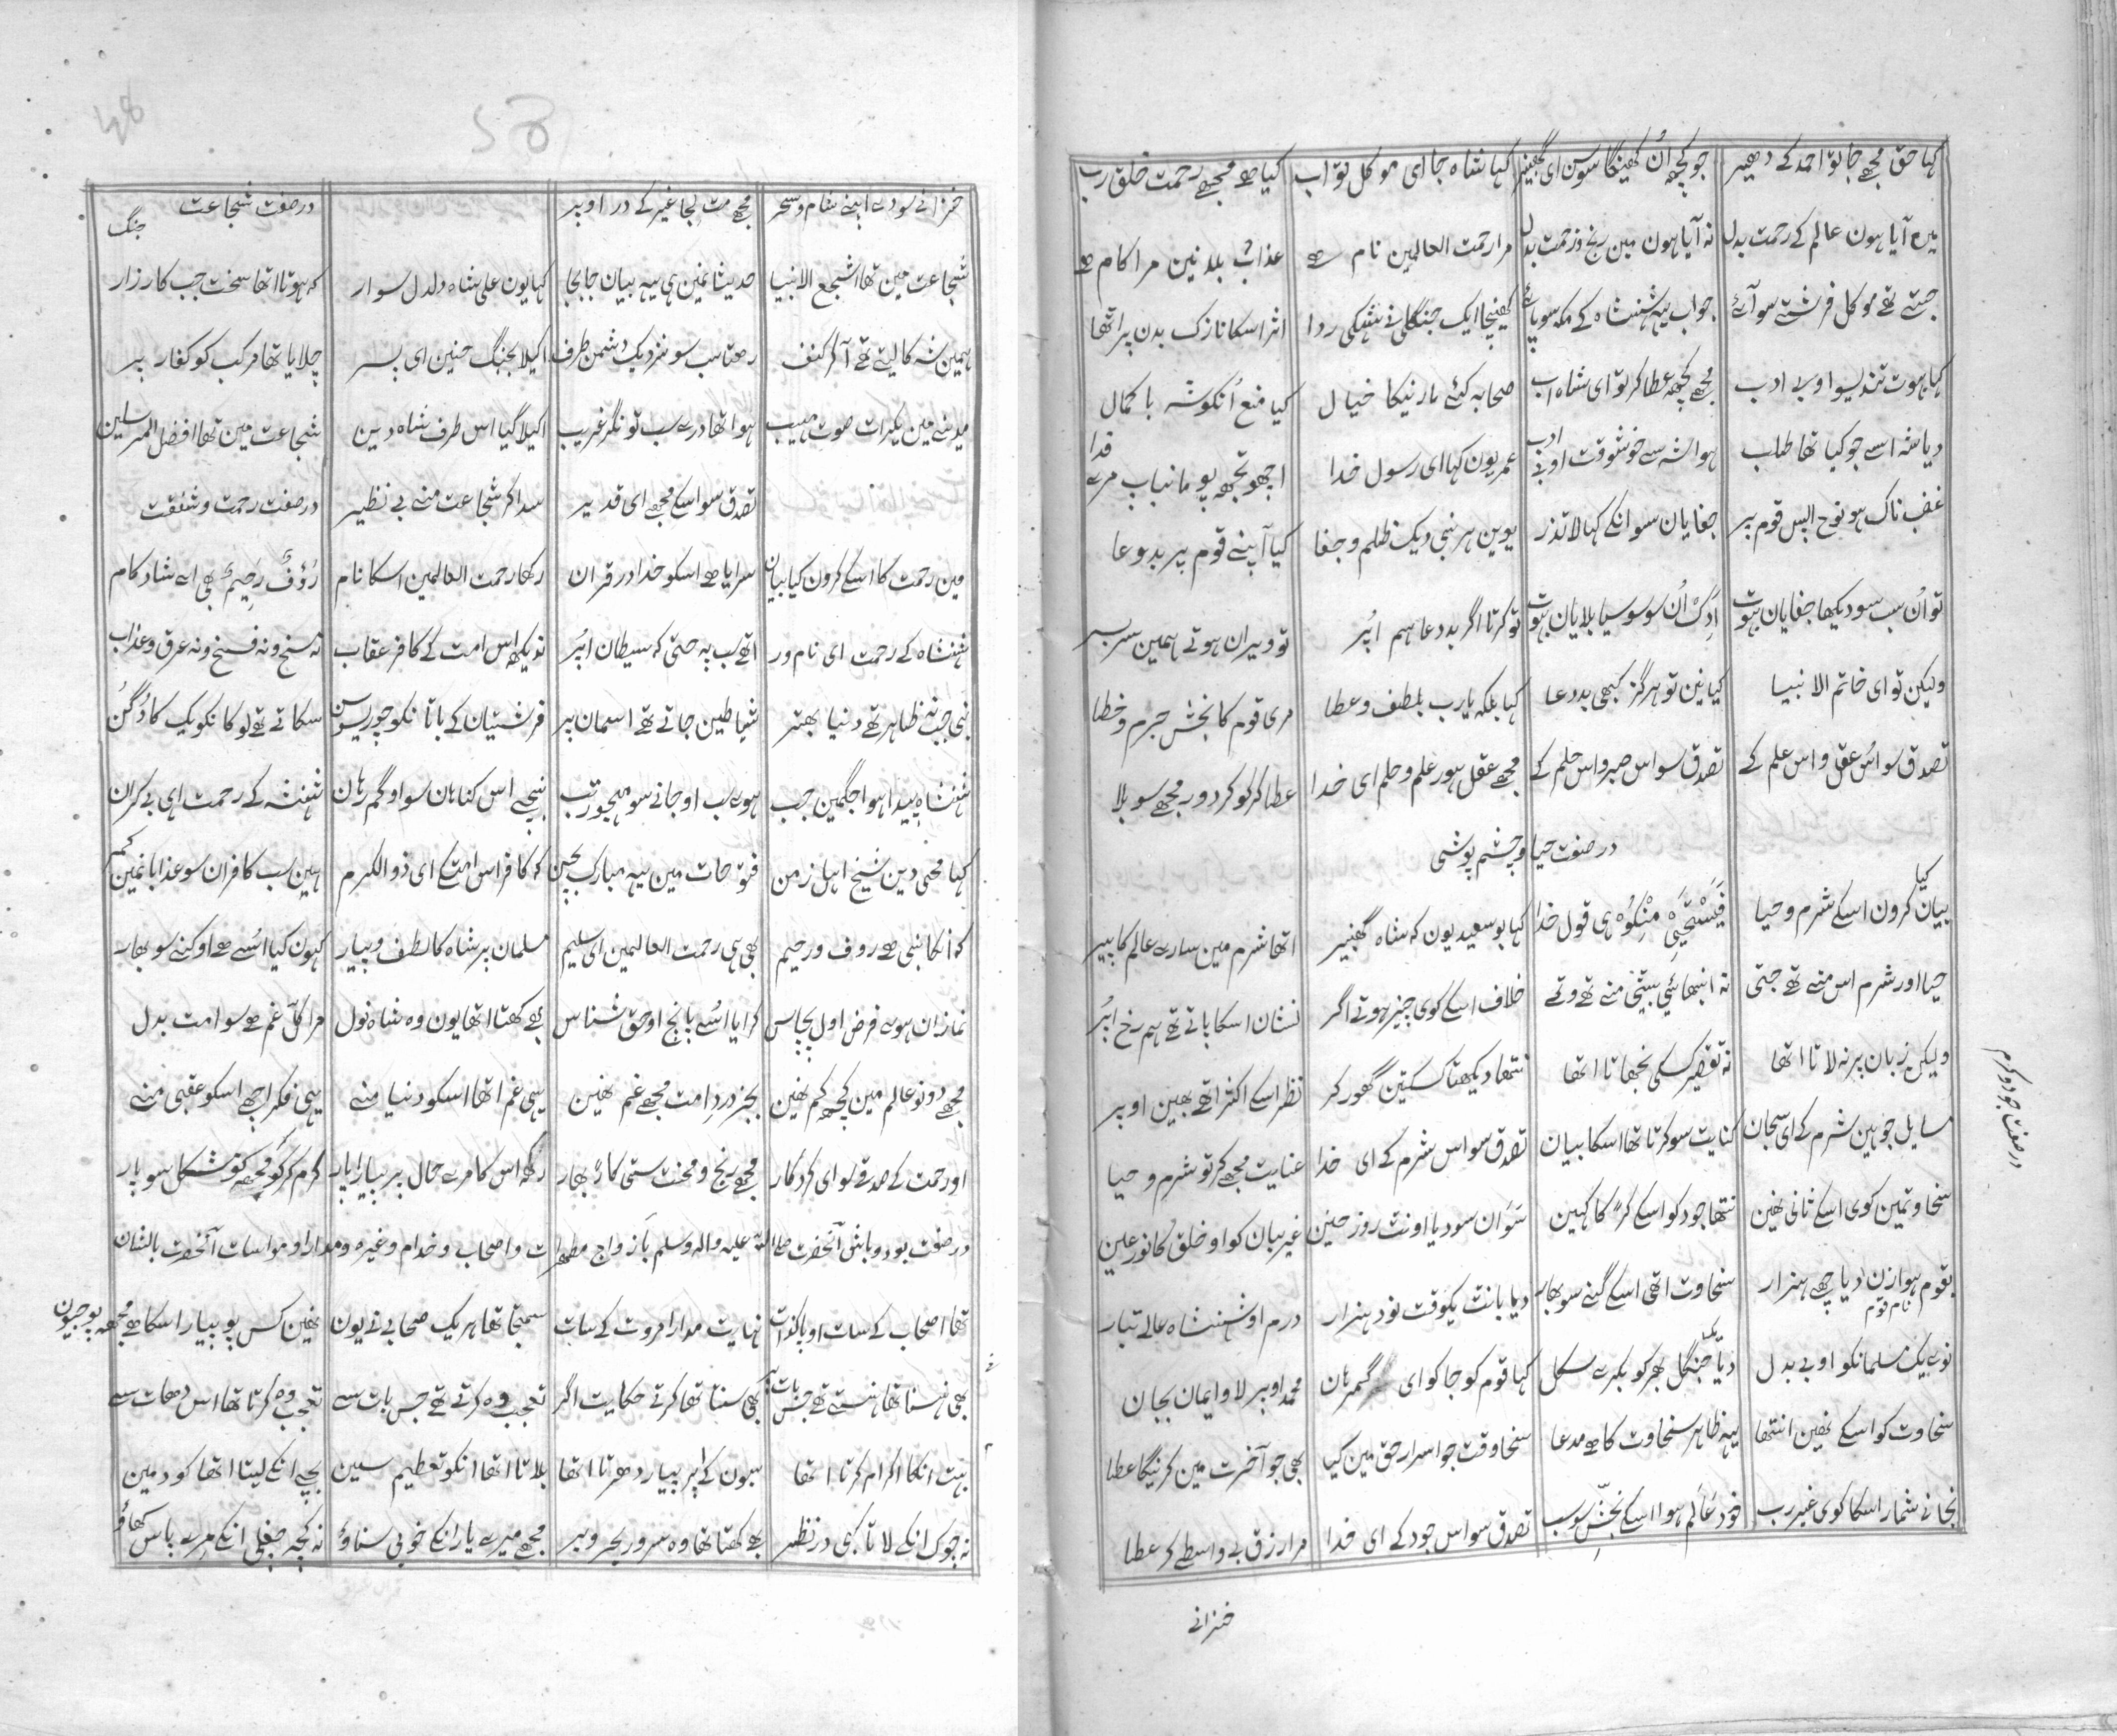 کہا حق مجھے جا تو احمد کے دھیر جو کچھ اُن کھینگا سو سن ای گھنیر کہا شاہ جا ای موکل تو اب کیا ھے مجھے رحمت خلق رب
میرہ آیا ہون عالم کے رحمت بدل نہ آیا ہون مین رنج و زحمت بدل مرا رحمت العالمین نام ھے عذاب بلا نین مرا کام ھے
جتے تھے موکل فرشتے سو آئے جواب یہ شہنشاہ کے مکہ سو پائے کھینچا ایک جنگلی نے شہ کی ردا اثر اسکا نازک بدن پر اتھا
کہا ہوت تند یسو او بے ادب مجھے کچھ عطا کر تو ای شاہ اب صحابہ کئے مارنیکا خیال کیا منع اُنکو شہ با کمال
دیا شہ اسے جو کیا تھا طلب ہوا شہ سے خوشوقت او بے ادب عمر یون کہا ای رسول خدا اچھو تجھ پو ما نباپ مرے فدا
غضب ناک ہو نوح اپس قوم پر جفایان سو انکے کہا لا تذر یوین ہر نبی دیک ظلم و جفا کیا آپنے قوم پر بد دعا
تو اُن سب سو دیکھا جفایان بہوت ادک اُن سو سوسیا بلایان بہوت تو کرتا اگر بد دعا ہم اپُر تو ویران ہوتے ہمین سربسر
ولیکن تو ای خاتم الانبیا کیا نین تو ہرگز کبھی بد دعا کہا بلکہ یارب بلطف و عطا مری قوم کا بخش جرم و خطا
تصدق سو اس عقل و اس علم کے تصدق سو اس صبر و اس حلم کے مجھے عقل ہور علم و حلم ای خدا عطا کر کو کر دور مجھ سو بلا
در صفت حیا و چشم پوشی
بیان کیا کرون اسکے شرم و حیا فَیَسْتَحْیِیْ مِنْکُمْ ہی قول خدا کہا بو سعید یون کہ شاہ گھنیر اتھا شرم مین سارے عالم کا پیر
حیا اور شرم اس منے تھے جتی نہ اتیھا ئیی بیٹی منے تھے وتے خلاف اسکے کوی چیز ہوتے اگر نشان اسکا پاتے تھے ہم رخ اپُر
ولیکن زبان پر نہ لاتا اتھا نہ تقصیر کسکی نجھاتا اتھا نتھا دیکھتا کسکتین گھور کر نظر اسکے اکثر اتھے بھین اوپر
مسایل جو ہین شرم کے ای سجان کنایت سو کرتا تھا اسکا بیان تصدق سو اس شرم کے ای خدا عنایت مجھے کر تو شرم و حیا
در صفت جود و کرم
سخاوتمین کوی اسکے ثانی نھین نتھا جود کو اسکے کر کا کہین سَوَان سو دیا اونٹ روز حنین غریبان کو او خلق کا نور عین
بقوم ہوازن دیا چھے ہزار سخاوت اتھی اسکے گنے سو بھار دیا بانٹ یکوقت نود ہزار درم او شہنشاہ عالے تبار
نام قوم
نوے یک مسلمانکو او بے بدل دیا جنگل بھر کو بکرے سکل کہا قوم کو جا کو ای گمرہان محمد اوپر لاو ایمان بجان
سخاوت کو اسکے نھین انتھا یہہ ظاہر سخاوت کا ھے مدعا سخاوت جو اسرار حق مین کیا بھی جو آخرت مین کرنیگا عطا
نجانے شمار اسکا کوی غیر رب خود عالم ہوا اسکے بخشِ سو سب تصدق سو اس جود کے ای خدا مرا رزق بے واسطے کر عطا
خزانے
48
خزانے سو دے اپنے شام و سحر مجھے مت لجا غیر کے در اوپر در صفت شجاعت جنگ
شجاعت مین تھا اشجع الانبیا حدیثا نمین ہی یہ بیان جابجا کہا یون علی شاہ دلدل سوار کہ ہوتا اتھا سخت جب کارزار
ہمین شہ کا لیتے تھے آ کر کنف رھتا سب سو نزدیک دشمن طرف اکیلا بجنگ حنین ای پسر چلایا تھا مرکب کو کفار پر
مدینے مین یکرات صوت مہیب ہوا تھا درے سب تونگر غریب اکیلا گیا اس طرف شاہ دین شجاعت مین تھا افضل المرسلین
تصدق سو اسکے مجھے ای قدیر سدا کر شجاعت منے بے نظیر در صفت رحمت و شفقت
مین رحمت کا اسکے کرون کیا بیان سرایا ھے اسکو خدا در قران رکھا رحمت العالمین اسکا نام رُؤفٌ رحیمٌ بھی اے شاد کام
شہنشاہ کے رحمت ای نام ور اتھے سب پہ حتی کہ سیطان اپُر نہ دیکھ اس امت کے کافر عقاب نہ مسخ و نہ فسخ و نہ غرق و عذاب
نبی جب نہ ظاہر تھے دنیا بھتر شیاطین جاتے تھے اسمان پر فرشتیان کے باتا نکو چوریسون سکاتے تھے لوکا نکو یک کا دُگن
شہنشاہ پیدا ہوا جگمین جب ہوے سب او جانے سو مہجور تب بچے اس گناہان سو او گمرہان شہنشہ کے رحمت ای بے کران
کہا محی دین شیخ اہل زمن فتوحات مین یہہ مبارک بچن کہ کافر اس امت کے ای ذو الکرم ہین سب کافران سو عذابا نمین کم
کہ انکا نبی ھے روف و رحیم بھی ہی رحمت العالمین ای سلیم مسلمان پر شاہ کا لطف و پیار کہون کیا اُسے ھے او گنے سو بھار
نمازان ہوے فرض اول پچاس کرایا اُسے پانچ او حق شناس بھے کھتا اتھا یون وہ شاہ نول مرا کل غم ھے سو امت بدل
مجھے دونو عالم مین کچھ کم نھین بجز درد امت مجھے غم نھین یہی غم اتھا اسکو دنیا منے یہی فکر اچھے اسکو عقبی منے
او رحمت کے صدقے سو ای کردگار مجھے رنج و محنت ستی کاڑ بھار رکھ اس کا مرے حال پر پیار یار کرم کر کو مجھ کو تو مشکل سو پار
در صفت بود و باش آنحضرت صلی اللہ علیہ والہ وسلم با زواج مطھرات و اصحاب و خدام وغیرہ و مدارا و مواسات آنحضرت بالنشان
تھا اصحاب کے سات او پاکذات نہایت مدارا مروت کے سات سمجتا تھا ہریک صحابی نے یون نھین کس پو پیار اسکا ھے مجھ پو جیون
بھی ہنستا تھا ہنستے تھے جس بات پر بھی سنتا تھا کرتے حکایت اگر تعجب وہ کرتے تھے جس بات سے تعجب وہ کرتا تھا اس دھات سے
بہت انکا اکرام کرتا اتھا سبون کے اپر پیار دھرتا اتھا بلاتا اتھا انکو تعظیم سین بچے انکے لیتا اتھا کود مین
نہ چوک انکے لاتا کبھی در نظر بھے کھتا تھا وہ سرور بحر و بر مجھے میرے یارانکے خوبی سناؤ نہ کچھ چغلی انکے مرے پاس کھاؤ